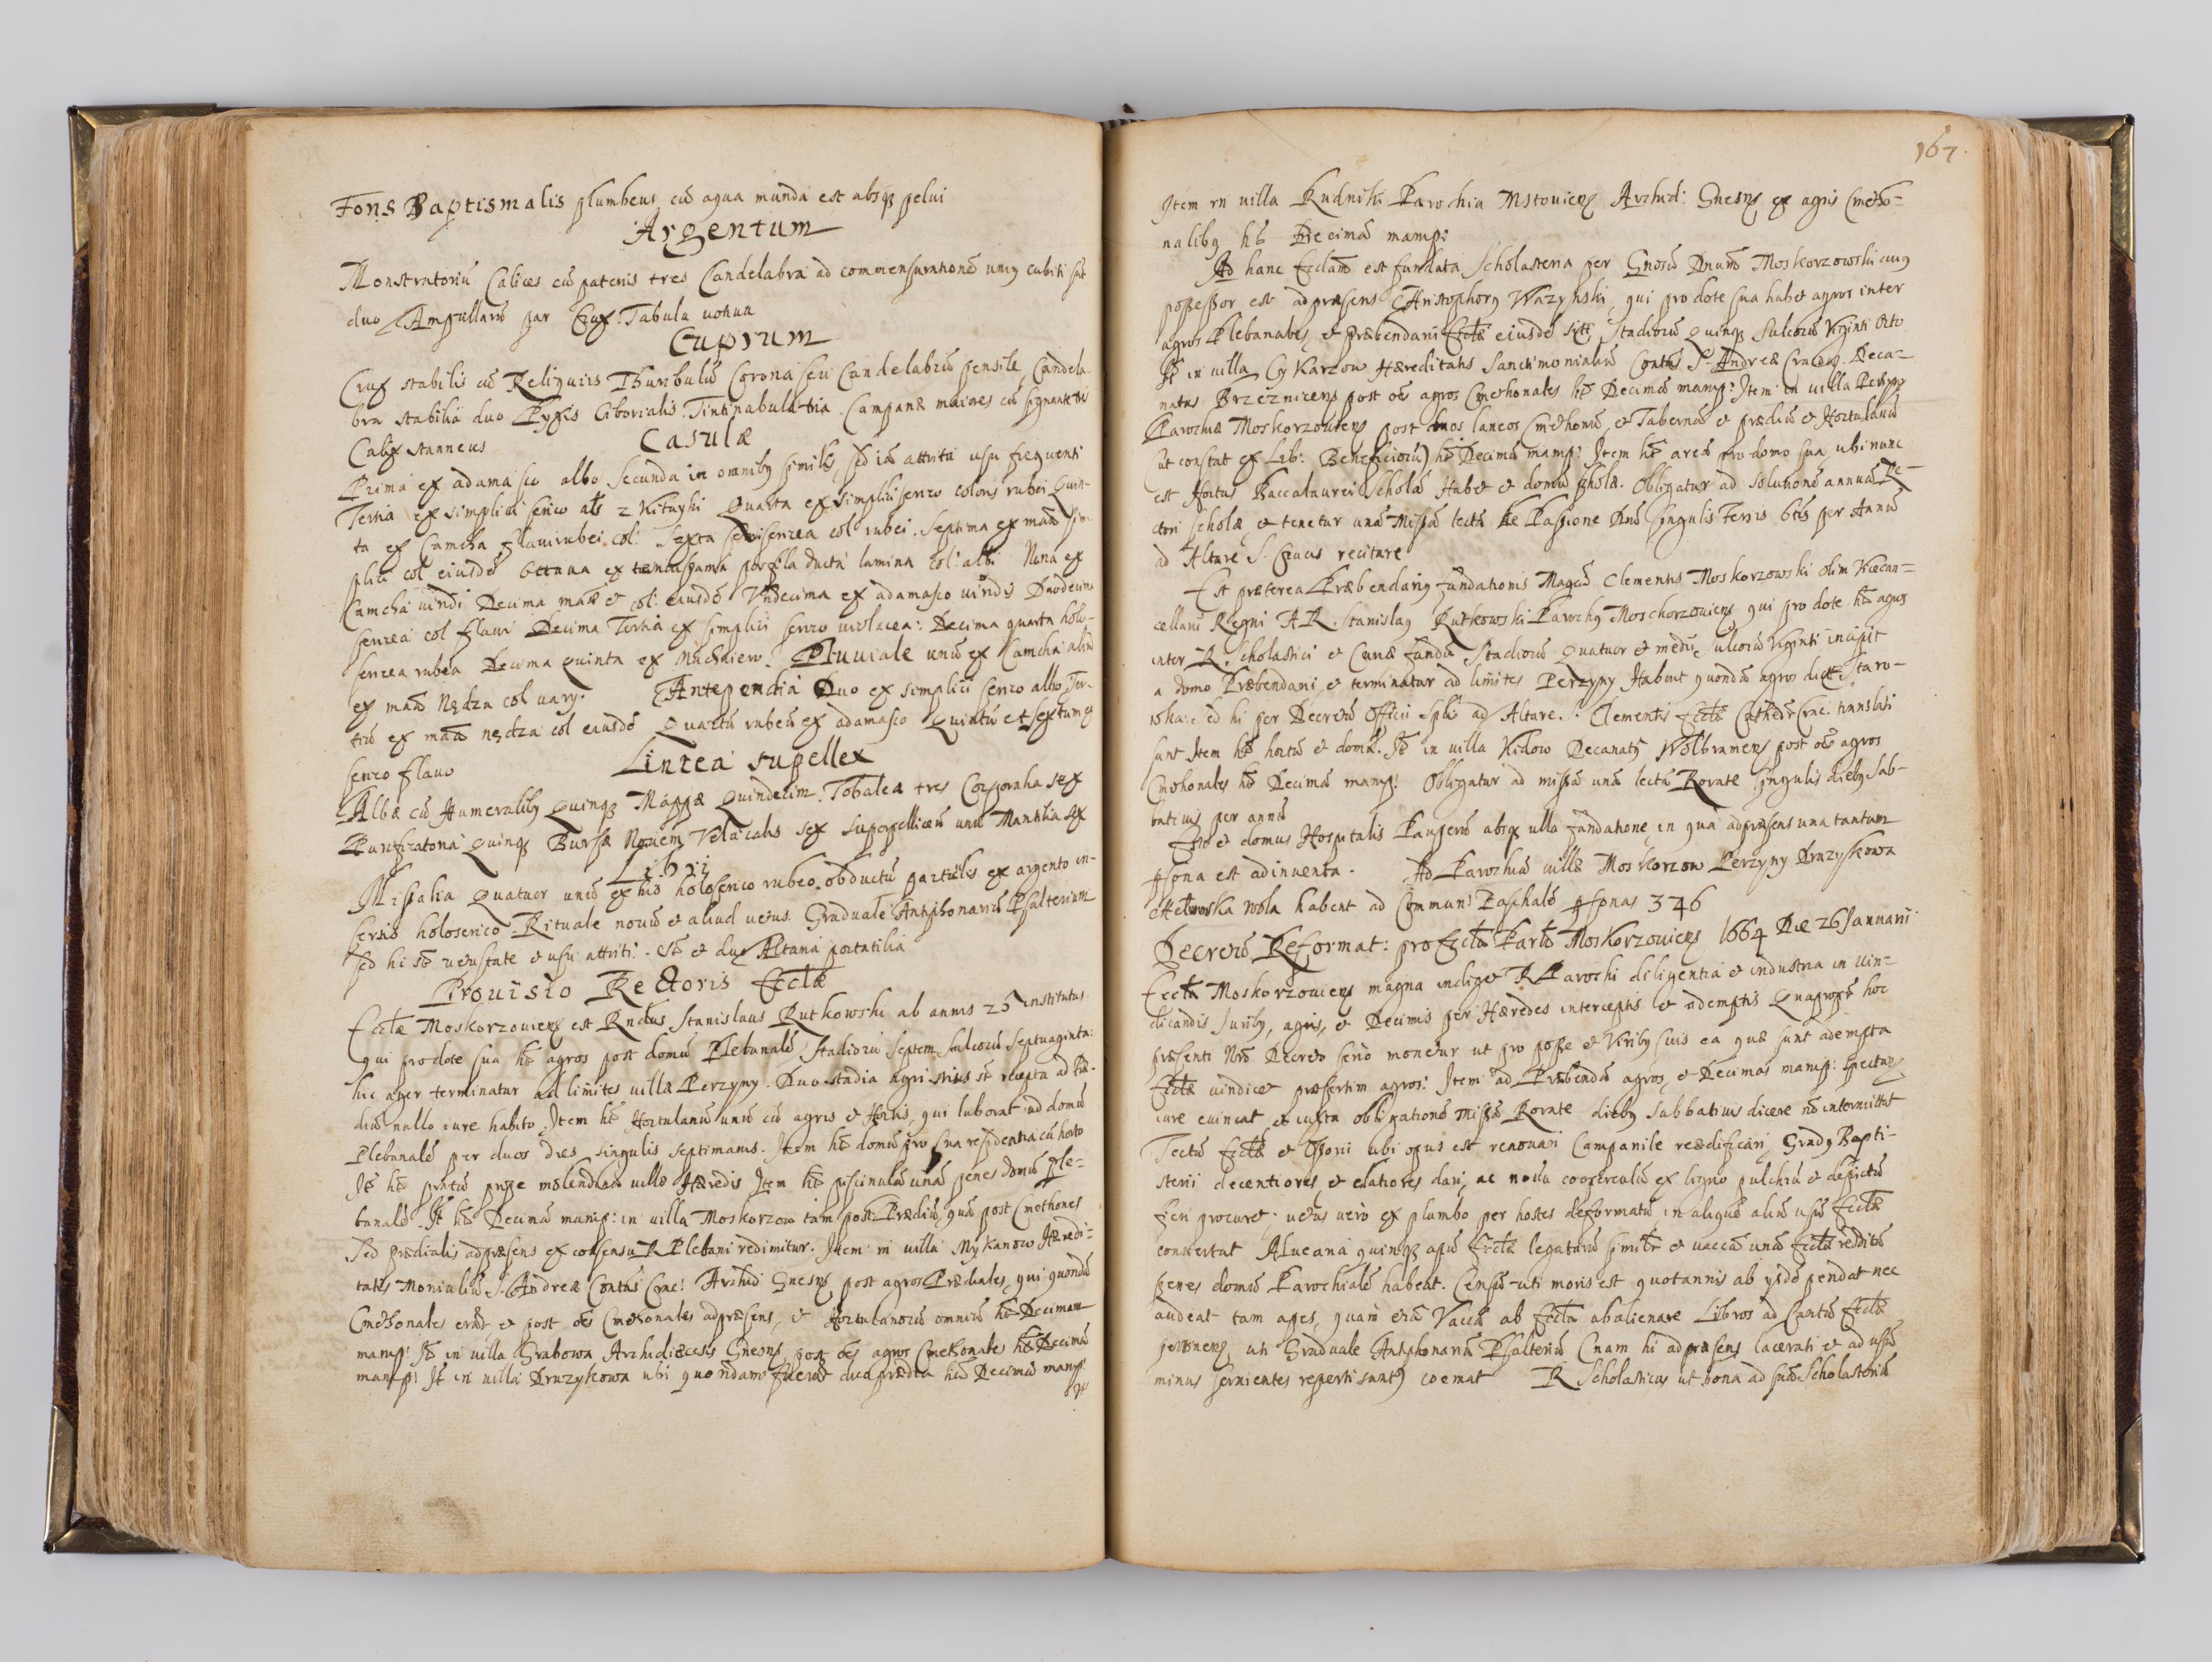 Fons Baptismalis plumbeus, cũ aqua munda est absq; pelui
Argentum
Monstratoriũ Calices cũ patenis tres Candelabra ad commensurationẽ uniq cubiti
duo Ampullarũ par Crux Tabula uotiua
Cuprum
Crux stabilis cũ Reliquiis Thuribulũ Corona seu Candelabrũ pensile Candela-
bra stabilia duo Pyxis Ciborialis Tintinabula tria. Campanæ maiores cũ
Calix stanneus
Casulæ
Prima ex adamasco albo Secunda in omnibq similis, sed iã attrita usu frequenti
Tertia ex simplici serico als z Kitayki Quarta ex simplici serico coloris rubei Quin-
ta ex Camcha flauirubei col: Sexta semisericea col rubei. Septima ex mãa sim-
plici col eiusdẽ Octaua ex per fila ducta lamina col: albi Nona ex
Camcha uiridi Decima mãæ et col: eiusdẽ Vndecima ex adamasco uiridi Duodecima
sericea col flaui Decima Tertia ex simplici serico uiolacea: Decima quarta holo-
sericea rubea Decima Quinta ex Muchaier. Pluuiale unũ ex Camcha aliud
ex mãa Nędza col uary. Antependia Duo ex simplici serico albo, Ter-
tiũ ex mãa nędza col eiusdẽ Quartũ rubeũ ex adamasco Quintũ et sextum ex
serico flauo
Lintea supellex
Albæ cũ Humeralibq Quinq; Mappæ Quindecim. Tobaleæ tres Corporalia sex
Purificatoria Quinq; Bursæ Nouem Vela calis sex Superpelliceũ unũ Mantilia sex
Libri
Missalia Quatuor unũ ex his holoserico rubeo obductũ particulis ex argento in-
sertis holoserico. Rituale nouũ et aliud uetus. Graduale Antiphonariũ Psalterium
sed hi sũt uetustate et usu attriti. Sũt et duo Altaria portatilia
Prouisio Rectoris Ecclæ
Ecclæ Moskorzouiens est Rndus Stanislaus Rutkowski ab annis 25 institutus
qui pro dote sua hẽt agros post domũ Plebanalẽ Stadiorũ Septem sulcorũ Septuaginta:
hic ager terminatur ad limites uillæ Perzyny. Duo stadia agri sũt recepta ad Præ-
diũ nullo iure habito. Item hẽt Hortulanũ unũ cũ agris et Hortis, qui laborat ad domũ
Plebanalẽ per duos dies singulis septimanis. Item hẽt domũ pro sua residentia cũ horto
Itẽ hẽt pratũ prope molendinũ uillæ Hæredis Item hẽt piscinulã unã penes domũ Ple-
banalẽ. Itẽ hẽt Decimã manip: in uilla Moskorzow tam post Prædiũ, quã post Cmethones
Sed prædialis ad præsens ex consensu R Plebani redimitur. Item in uilla Mykanow Hæredi-
tatis Monialiũ S. Andreæ Contus Crac: Archid Gnesns, post agros Prædiales, qui quondã
Cmethonales erãt, et post oẽs Cmethonales ad præsens, et Hortulanorũ omniũ hẽt Decimam
manip: Itẽ in uilla Grabowa Archidiœcesis Gnesns, post oẽs agros Cmethonales hẽt Decimã
manip: Itẽ in uilla Druzykowa ubi quondam fuerũt duo prædia hẽt Decimã manip:
167.
Item in uilla Rudniki Parochia Mstouiens Archid: Gnesns ex agris Cmetho-
nalibq hẽt Decimã manip:
Ad hanc Ecclam est fundata Scholasteria per Gnosũ Dnum Moskorzowski cuiq
possessor est ad præsens Christophorq Wazynski, qui pro dote sua habet agros inter
agros Plebanales, et præbendarii Ecclæ eiusdẽ sitos Stadiorũ Quinq; Sulcorũ Viginti Octo
Itẽ in uilla Cykarzow Hæreditatis Sanctimonialiũ Contus S. Andreæ Cracou. Deca-
natus Brzeznicens post oẽs agros Cmethonales hẽt Decimã manip: Item in uilla Perzyny
Parochiæ Moskorzouiens post duos laneos Cmethonũ, et Tabernã et prædiũ et Hortulanũ
(ut constat ex Lib: Beneficiorũ) hẽt Decimã manip: Item hẽt areã pro domo sua, ubi nunc
est Hortus Baccalaurei Scholæ Habet et domũ Scholæ. Obligatur ad solutionẽ annuã Re-
ctori scholæ, et tenetur unã Missã lectã de Passione Dñi singulis Feriis 6tis per Annũ
ad Altare S. Crucis recitare
Est præterea Præbendariq fundationis Magci Clementis Moskorzowski olim Vicecan-
cellarii Regni A R. Stanislaq Rutkowski Parochq Moschorzouiens qui pro dote hẽt agros
inter R. Scholastici et Curiæ fundũ Stadiorũ Quatuor et medii, sulcorũ Viginti incipit
a domo Præbendarii, et terminatur ad limites Perzyny Habuit quondã agros dictos Staro-
wska: sed hi per Decretũ Officii Splis ad Altare S. Clementis Ecclæ Cathedr: Crac: translati
sunt Item hẽt hortũ et domũ. Itẽ in uilla Kidow Decanatq Wolbramens post oẽs agros
Cmethonales hẽt Decimã manip: Obligatur ad missã unã lectã Rorate singulis diebq Sab-
batiuis per annũ
Est et domus Hospitalis Pauperũ absq; ulla fundatione, in qua ad præsens una tantum
psona est adinuenta. Ad Parochiã uillæ Moskorzow Perzyny Druzykowa
et wola habent ad Commun: Paschalẽ psonas 346
Decretũ Reformat: pro Eccla Parli Moskorzouiens 1664 Die 26 Januarii
Eccla Moskorzouiens magna indiget R Parochi diligentia et industria in uin-
dicandis Juribq, agris, et Decimis per Hæredes interceptis et ademptis Quapropter hoc
præsenti Nro Decreto serio monetur ut pro posse et Viribq suis ea quæ sunt adempta
Ecclæ uindicet præsertim agros: Item ad Præbendã agros, et Decimas manip: spectans
iure euincat, et iuxta obligationẽ missã Rorate diebq Sabbatiuis dicere nõ intermittat
Tectũ Ecclæ et Ossorii ubi opus est renouari Campanile reædificari, Gradq Bapti-
sterii decentiores, et elatiores dari, ac nouũ cooperculũ ex ligno pulchrũ et depictũ
fieri procuret; uetus uero ex plumbo per hostes deformatũ in aliquẽ aliũ usũ Ecclæ
conuertat Aluearia quinq; apũ Ecclæ legatarũ similr et uaccã unã Ecclæ redditã
penes domũ Parochialẽ habeat. Censũ uti moris est quotannis ab ysdẽ pendat nec
audeat tam apes, quam etiã Vaccã ab Eccla abalienare Libros ad Cantũ Ecclæ
pertinens, uti Graduale Antiphonariũ Psalteriũ (nam hi ad præsens lacerati et ad usũ
minus seruientes reperti sunt) coemat R Scholasticus ut bona ad suã Scholasteriã